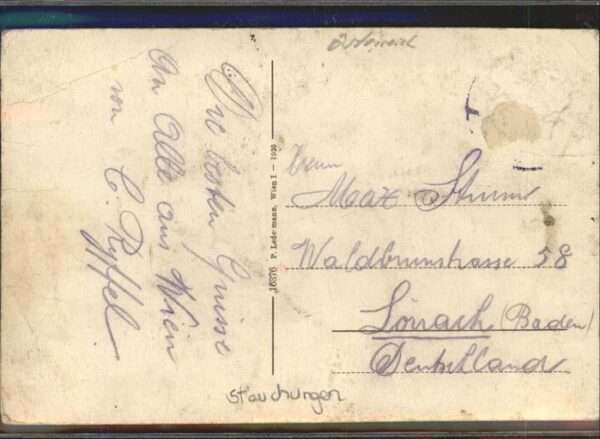 Österreich
Die besten Grüsse
An Alle aus Wien
von C. Ryffel
16876 P. Ledermann, Wien I - 1930
Herrn
Max Sturm
Waldbrunstrasse 58
Lörrach (Baden)
Deutschland
Stauchungen